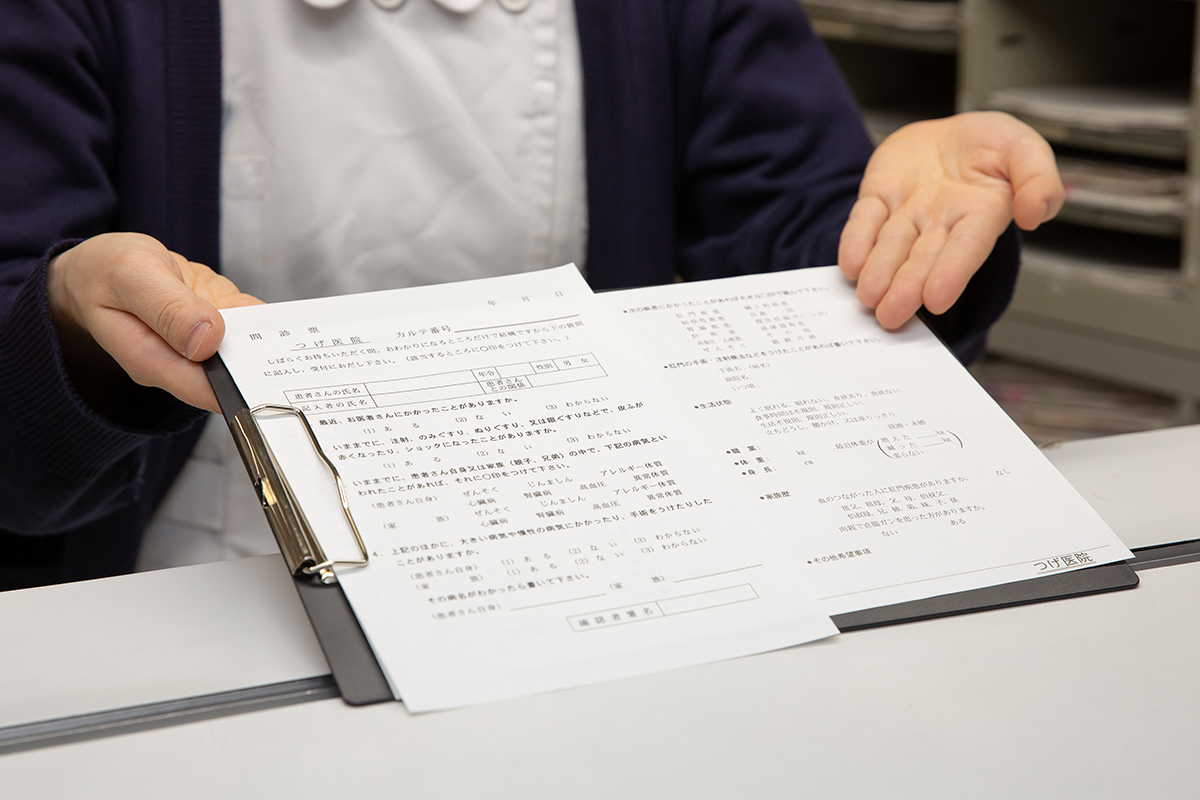 年 月 日
問 診 票
つげ医院 カルテ番号
しばらくお待ちいただく間、おわかりになるところだけで結構ですから下の質問
に記入し、受付におだし下さい。(該当するところに〇印をつけて下さい。)
患者さんの氏名 年令 性別 男 女
記入者の氏名 患者さんとの関係
最近、お医者さんにかかったことがありますか。
(1) あ る (2) な い (3) わからない
いままでに、注射、のみぐすり、ぬりぐすり、又は眼ぐすりなどで、皮ふが
赤くなったり、ショックになったことがありますか。
(1) あ る (2) な い (3) わからない
いままでに、患者さん自身又は家族(親子、兄弟)の中で、下記の病気とい
われたことがあれば、それに〇印をつけて下さい。
(患者さん自身) ぜんそく じんましん アレルギー体質
心臓病 腎臓病 高血圧 異常体質
(家 族) ぜんそく じんましん アレルギー体質
心臓病 腎臓病 高血圧 異常体質
4. 上記のほかに、大きい病気や慢性の病気にかかったり、手術をうけたりした
ことがありますか。
(患者さん自身) (1) あ る (2) な い (3) わからない
(家 族) (1) あ る (2) な い (3) わからない
その病名がわかったら書いて下さい。
(患者さん自身) (家 族)
確 認 者 署 名
●次の疾患にかかったことがあれば大きな〇印で囲んで下さい。
肛 門 疾 患 婦 人 科 疾 患
ぜ ん そ く
●肛門の手術・注射療法などをうけたことがあれば書いて下さい。
手術名:(病名)
病院名:
いつ頃:
●生活状態
よく眠れる、眠れない、食欲あり、食欲ない、
食事時間は不規則、規則正しい、
生活不規則、規則正しい、
立ちどうし、腰かけ、又は座りっきり
●職 業: 既婚・未婚
●体 重: kg 最近体重が (増えた kg
減った kg
変らない)
●身 長: cm
●家族歴
血のつながった人に肛門疾患がありますか。 なし
祖父、祖母、父、母、伯叔父、
伯叔母、兄、姉、弟、妹、子、孫
内親で直腸ガンを患った方がありますか。
ない ある
●その他希望事項
つげ医院